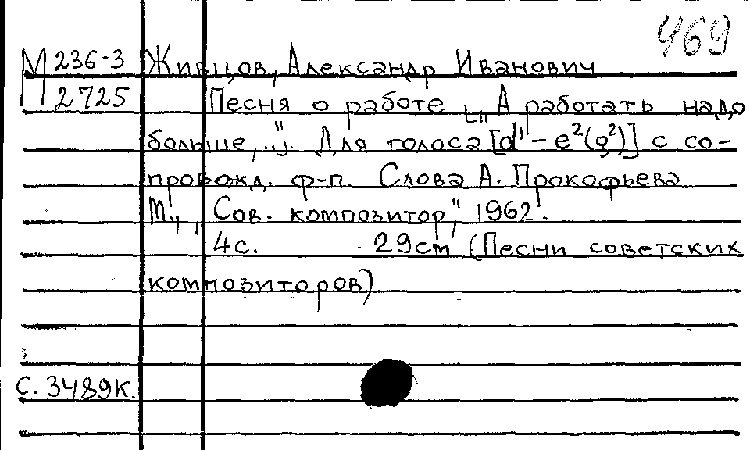 469
М 236-3 Живцов, Александр Иванович
2725 Песня о работе [„А работать надо
больше,..."]. Для голоса [d¹-e²(g²)] с со-
провожд. ф-п. Слова А. Прокофьева
М., „Сов. композитор", 1962.
4с. 29см (Песни советских
композиторов)
С. 3489к.